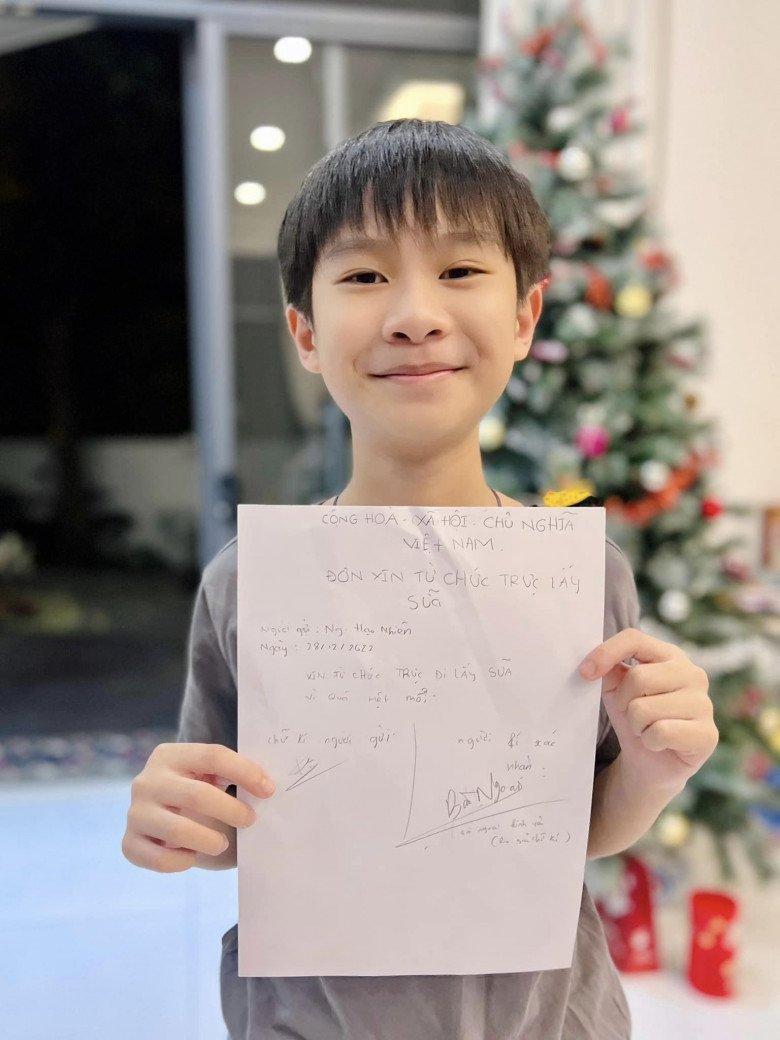 CÔNG HOÀ - XÃ HÔI - CHỦ NGHĨA
VIỆT NAM.
ĐƠN XIN TỪ CHỨC TRỰC LẤY
SUÃ
Người gửi: Ng. Hạo Nhiên
Ngày: 28/12/2022
XIN TỪ CHỨC TRỰC ĐI LẤY SỮA
vì quá mệt mỏi.
chữ kí người gửi
người kí xác
nhận:
Bà Ngoại